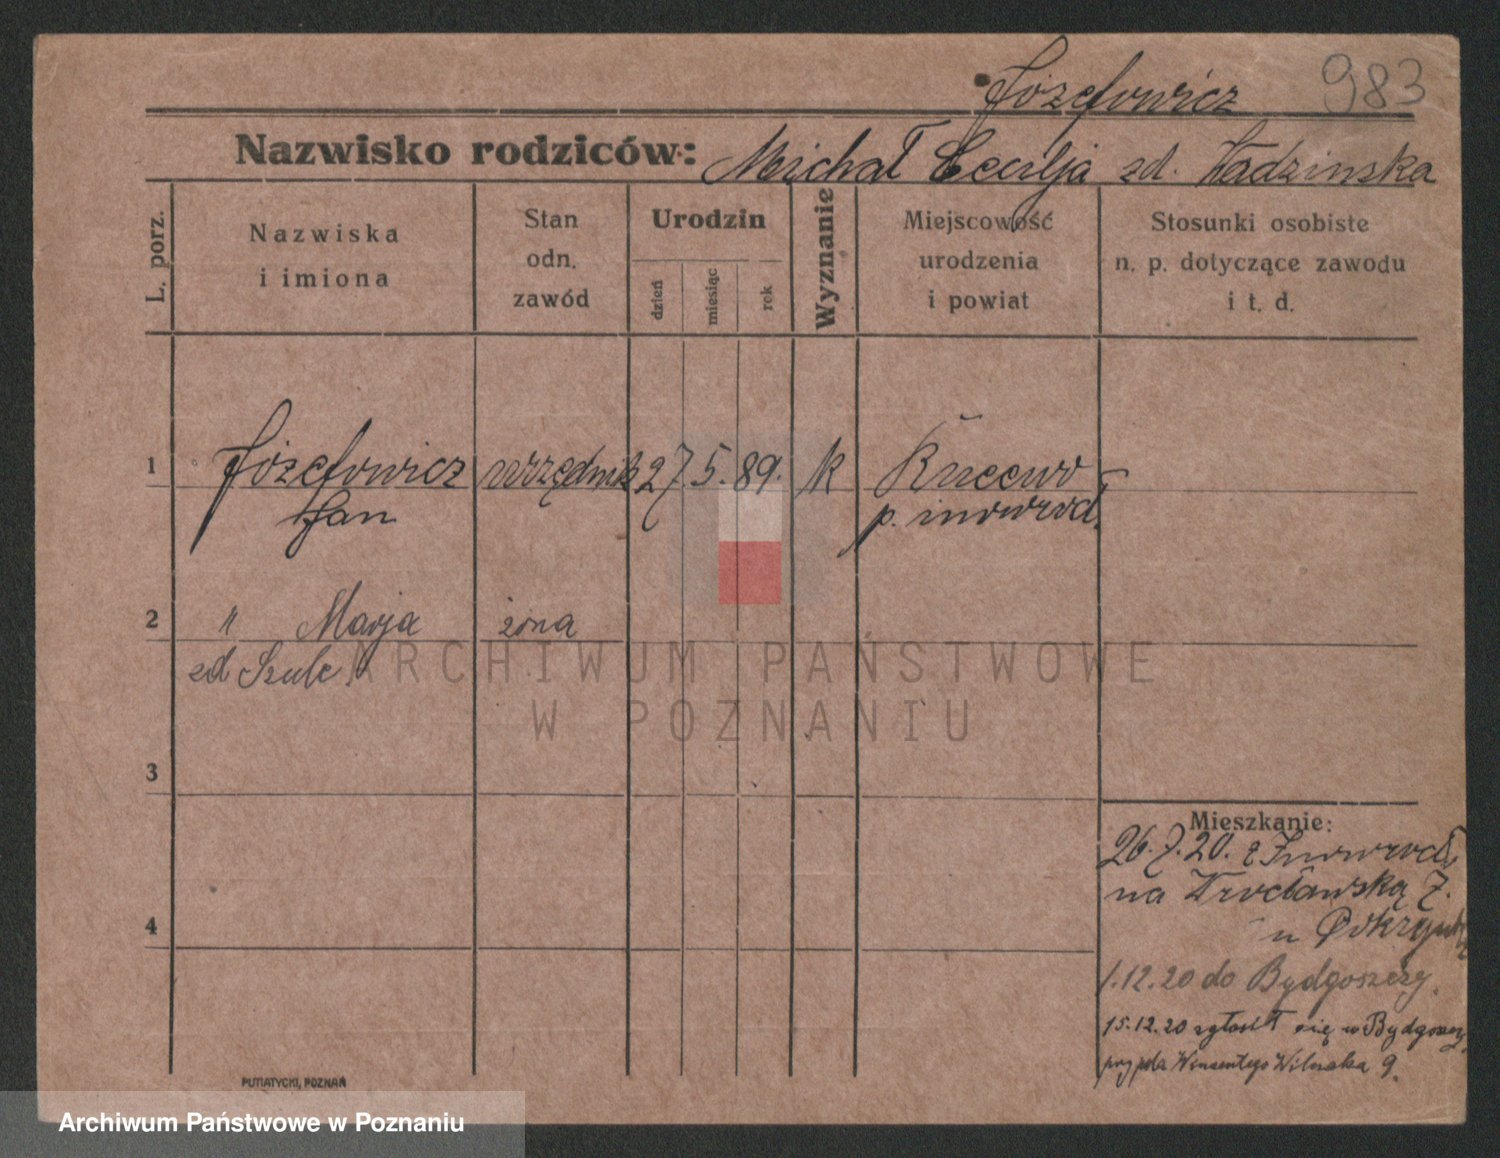 Józefowicz 983
Nazwisko rodziców: Michał Cecylja zd. Kadzinska
L. porz.
Nazwiska
i imiona
Stan
odn.
zawód
Urodzin
dzień
miesiąc
rok
Wyznanie
Miejscowość
urodzenia
i powiat
Stosunki osobiste
n. p. dotyczące zawodu
i t. d.
1 Józefowicz urzędnik 27 5. 89. k
Jan p. inowrocł.
2 " Marja żona
zd Szulc
ARCHIWUM PAŃSTWOWE
W POZNANIU
3
4
Mieszkanie:
26.7.20. z Inowrocł.
na Wrocławską 7.
u
1.12.20 do Bydgoszczy.
15.12.20 zgłosił się w Bydgoszczy
9.
PUTIATYCKI, POZNAŃ
Archiwum Państwowe w Poznaniu